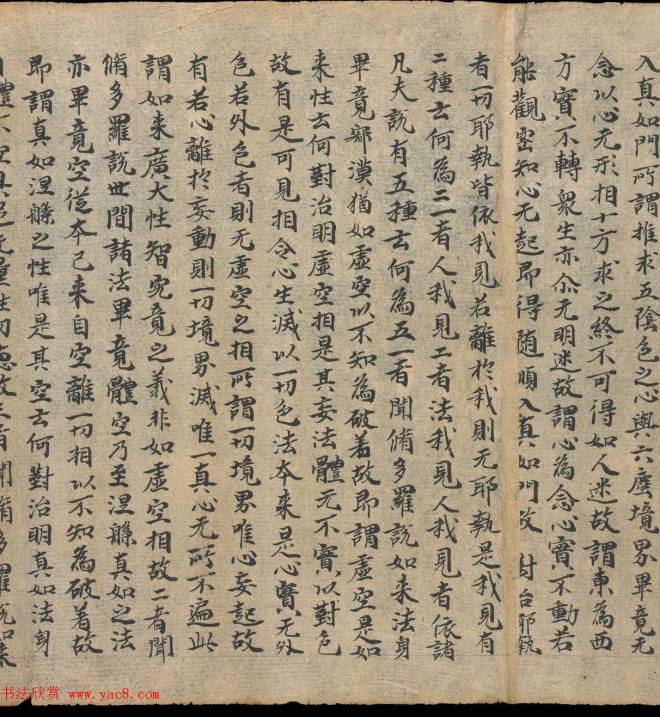 入真如門所謂推求五陰色之心與六塵境界畢竟无
念以心无形相十方求之終不可得如人迷故謂東為西
方實不轉衆生亦尒无明迷故謂心為念心實不動若
能觀密知心无起即得随順入真如門故 對台耶執
者一切耶執皆依我見若離於我則无耶執是我見有
二種云何為二一者人我見二者法我見人我見者依諸
凡夫說有五種云何為五一者聞脩多羅說如来法身
畢竟寂漠猶如虛空以不知為破著故即謂虛空是如
来性云何對治明虛空相是其妄法體无不實以對色
故有是可見相令心生滅以一切色法本来是心實无外
色若外色者則无虛空之相所謂一切境界唯心妄起故
有若心離於妄動則一切境界滅唯一真心无所不遍此
謂如来廣大性智究竟之義非如虛空相故二者聞
脩多羅說世間諸法畢竟體空乃至涅槃真如之法
亦畢竟空從本已来自空離一切相以不知為破著故
即謂真如涅槃之性唯是其空云何對治明真如法身
自體不空具足无量性功德故三者聞脩多羅說如来
书法欣赏 www.yac8.com